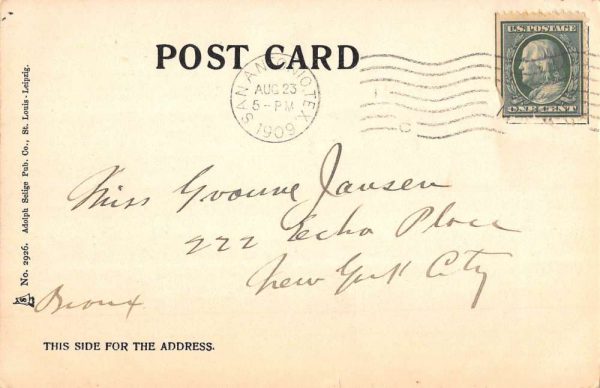 POST CARD
U.S. POSTAGE
ONE CENT
SAN ANTONIO, TEX.
AUG 23
5 - PM
1909
Miss Yvonne Jansen
222 Echo Place
New York City
Bronx
No. 2926. Adolph Selige Pub. Co., St. Louis - Leipzig.
THIS SIDE FOR THE ADDRESS.